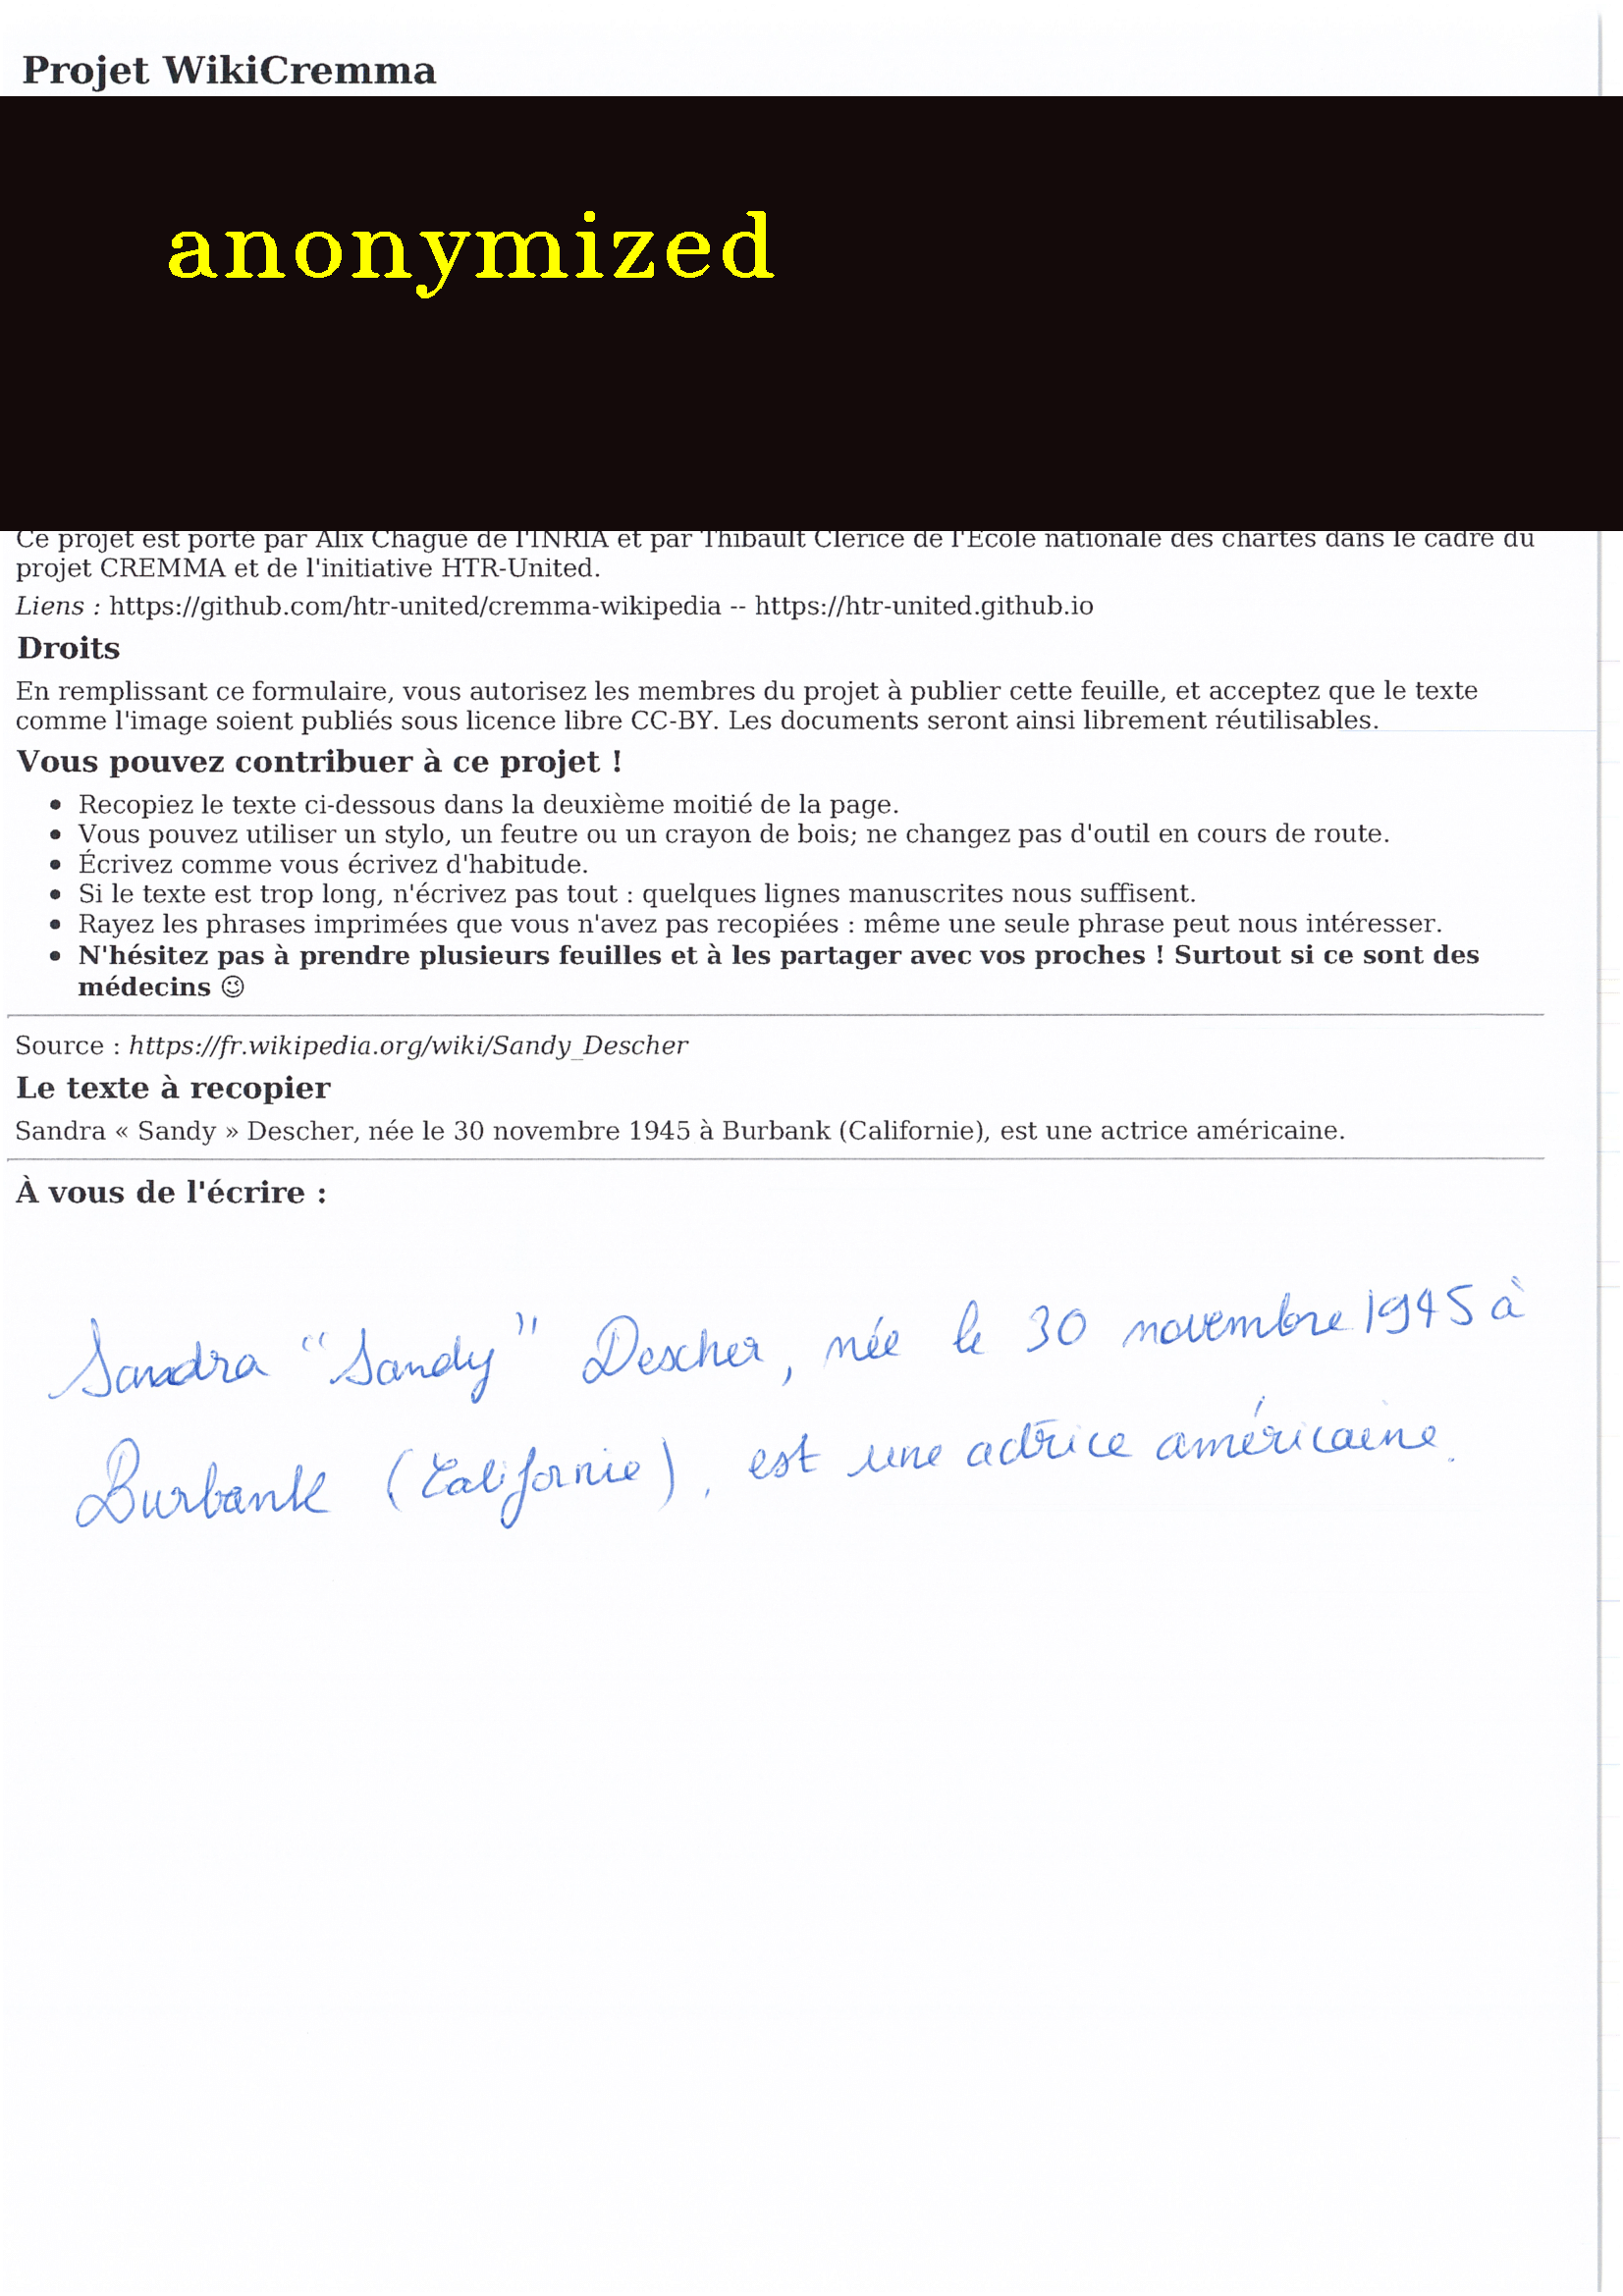 Projet WikiCremma
anonymized
Ce projet est porté par Alix Chagué de l'INRIA et par Thibault Clérice de l'École nationale des chartes dans le cadre du
projet CREMMA et de l'initiative HTR-United.
Liens : https://github.com/htr-united/cremma-wikipedia -- https://htr-united.github.io
Droits
En remplissant ce formulaire, vous autorisez les membres du projet à publier cette feuille, et acceptez que le texte
comme l'image soient publiés sous licence libre CC-BY. Les documents seront ainsi librement réutilisables.
Vous pouvez contribuer à ce projet !
• Recopiez le texte ci-dessous dans la deuxième moitié de la page.
• Vous pouvez utiliser un stylo, un feutre ou un crayon de bois; ne changez pas d'outil en cours de route.
• Écrivez comme vous écrivez d'habitude.
• Si le texte est trop long, n'écrivez pas tout : quelques lignes manuscrites nous suffisent.
• Rayez les phrases imprimées que vous n'avez pas recopiées : même une seule phrase peut nous intéresser.
• N'hésitez pas à prendre plusieurs feuilles et à les partager avec vos proches ! Surtout si ce sont des
médecins 😉
Source : https://fr.wikipedia.org/wiki/Sandy_Descher
Le texte à recopier
Sandra « Sandy » Descher, née le 30 novembre 1945 à Burbank (Californie), est une actrice américaine.
À vous de l'écrire :
Sandra "Sandy" Descher, née le 30 novembre 1945 à
Burbank (Californie), est une actrice américaine.